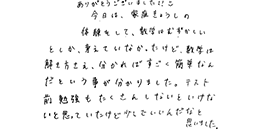 ありがとうございました!!
今日は、家庭きょうしの
体験をして、数学はむずかしい
としか、考えていなかったけど、数学は
解き方さえ、分かればすごく簡単なん
だという事が分かりました。テスト
前勉強もたくさんしないといけな
いと思っていたけど少しでいいんだなと
思いました。